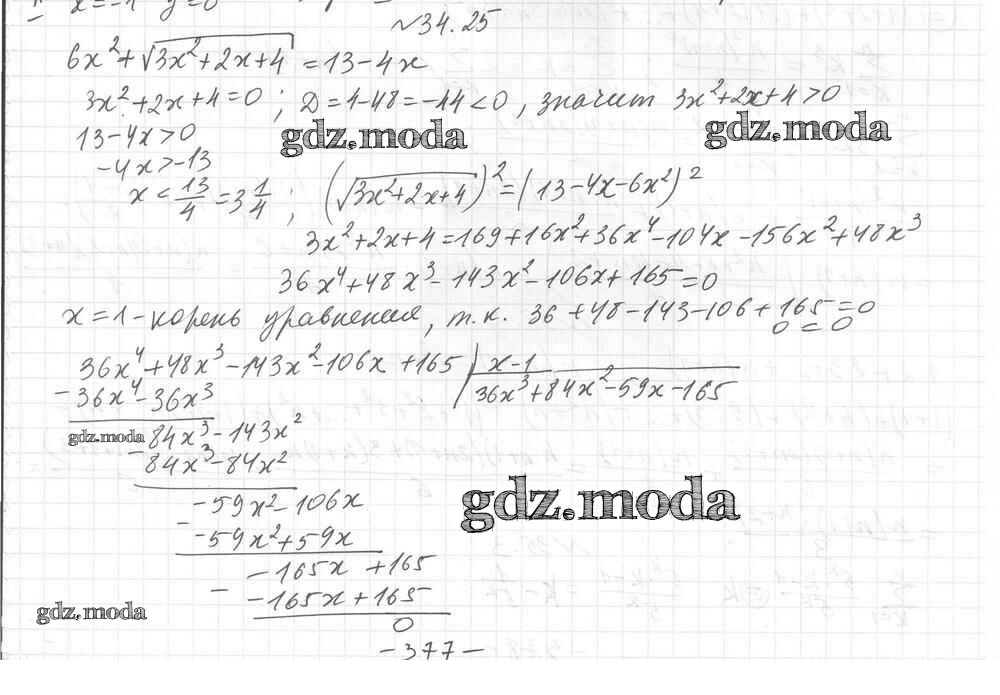 x=-1 y=0
№34.25
6x²+√(3x²+2x+4) =13-4x
3x²+2x+4=0 ; D=4-48=-44<0, значит 3x²+2x+4>0
13-4x>0
gdz.moda gdz.moda
-4x>-13
x<13/4=3 1/4 ; (√(3x²+2x+4))²=(13-4x-6x²)²
3x²+2x+4=169+16x²+36x⁴-104x-156x²+48x³
36x⁴+48x³-143x²-106x+165=0
x=1-корень уравнения, т.к. 36+48-143-106+165=0
0=0
36x⁴+48x³-143x²-106x+165 | x-1
-36x⁴-36x³ 36x³+84x²-59x-165
gdz.moda 84x³-143x²
-84x³-84x²
gdz.moda
-59x²-106x
- -59x²+59x
-165x+165
- -165x+165
gdz.moda
0
-377-